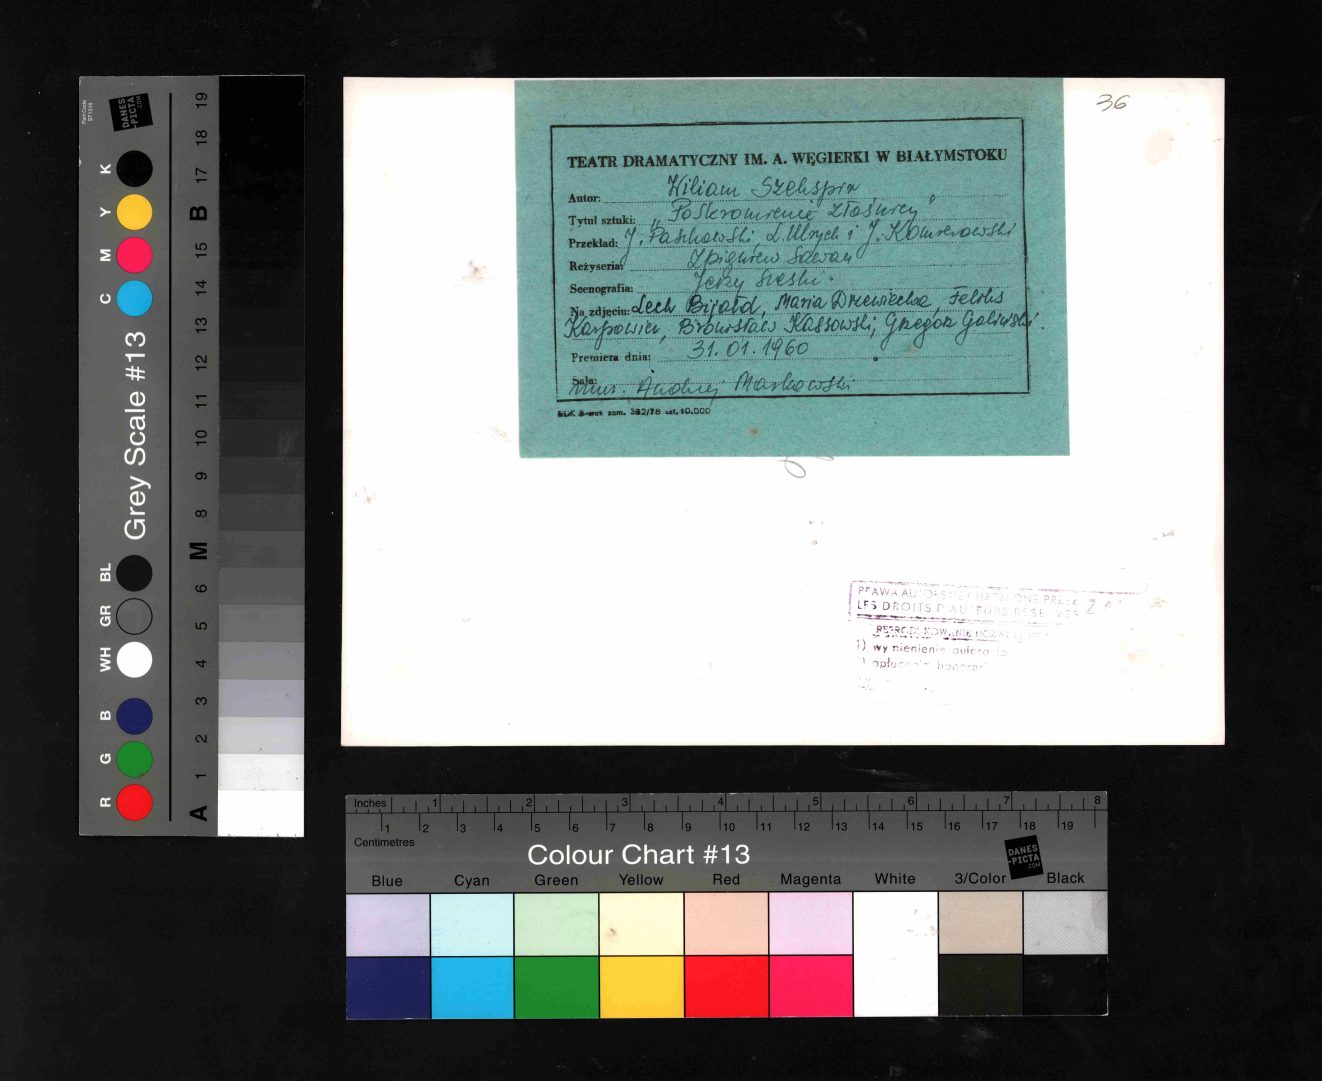 36
TEATR DRAMATYCZNY IM. A. WĘGIERKI W BIAŁYMSTOKU
Autor: Wiliam Szekspir
Tytuł sztuki: "Poskromienie złośnicy"
Przekład: J. Paszkowski, L. Ulrych i J. Komierowski
Reżyseria: Zbigniew Sawan
Scenografia: Jerzy
Na zdjęciu: Lech Bijałd, Maria Drzewiecka, Feliks
Karpowicz, Bronisław Kassowski, Grzegorz Galiński.
Premiera dnia: 31.01.1960
Sala:
muz. Andrzej Markowski
zam. 332/78 szt. 10.000
PRAWA AUTORSKIE CHRONIONE PRZEZ
LES DROITS D'AUTEURS RESERVES
REPRODUKOWANIE
1) wymienienie autora
Part Code
ST1316
DANES
-PICTA
.COM
Grey Scale #13
K Y M C BL GR WH B G R
19 18 17 B 15 14 13 12 11 10 9 8 M 6 5 4 3 2 1 A
Inches 1 2 3 4 5 6 7 8
1 2 3 4 5 6 7 8 9 10 11 12 13 14 15 16 17 18 19
Centimetres
Colour Chart #13
DANES
-PICTA
.COM
Blue Cyan Green Yellow Red Magenta White 3/Color Black